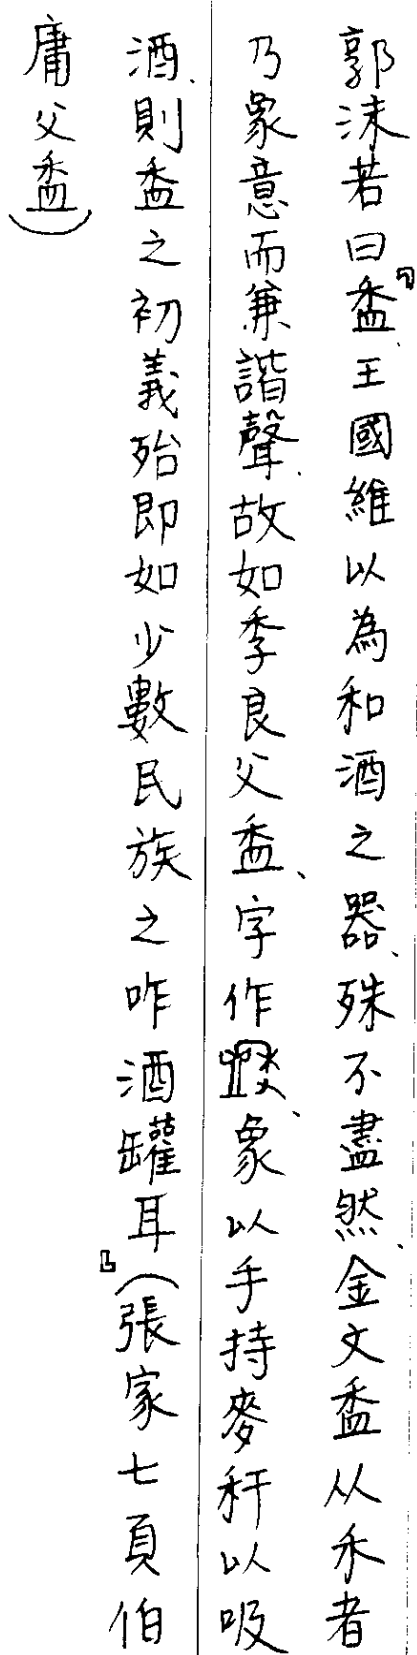 郭沫若曰「盉、王國維以為和酒之器、殊不盡然、金文盉从禾者
乃象意而兼諧聲、故如季良父盉、字作、象以手持麥秆以吸
酒、則盉之初義殆即如少數民族之咋酒罐耳」（張家七頁伯
庸父盉）